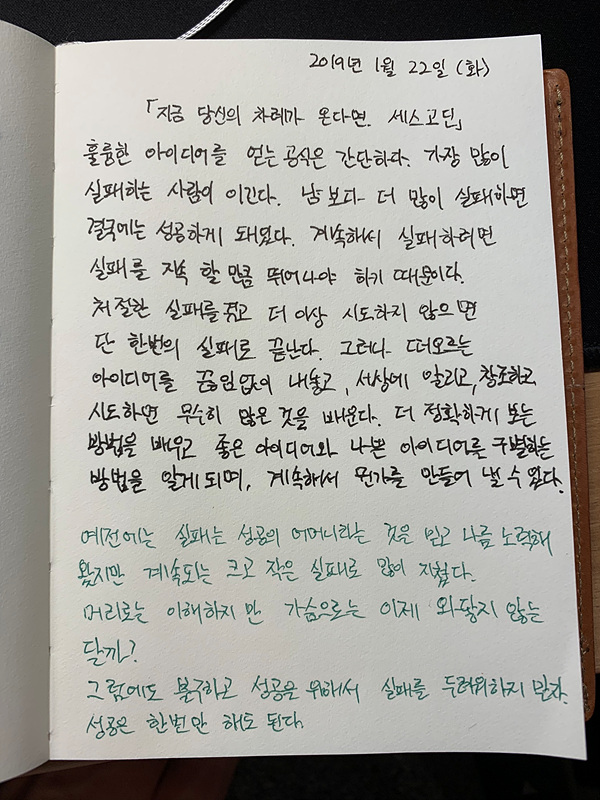 2019년 1월 22일 (화)
「지금 당신의 차례가 온다면. 세스고딘」
훌륭한 아이디어를 얻는 공식은 간단하다. 가장 많이
실패하는 사람이 이긴다. 남보다 더 많이 실패하면
결국에는 성공하게 돼있다. 계속해서 실패하려면
실패를 지속 할 만큼 뛰어나야 하기 때문이다.
처절한 실패를 겪고 더 이상 시도하지 않으면
단 한번의 실패로 끝난다. 그러나 떠오르는
아이디어를 끊임없이 내놓고, 세상에 알리고, 창조하고
시도하면 무수히 많은 것을 배운다. 더 정확하게 보는
방법을 배우고 좋은 아이디어와 나쁜 아이디어를 구별하는
방법을 알게되며, 계속해서 뭔가를 만들어 낼 수 있다.
예전에는 실패는 성공의 어머니라는 것을 믿고 나름 노력해
왔지만 계속되는 크고 작은 실패로 많이 지쳤다.
머리로는 이해하지만 가슴으로는 이제 와닿지 않는
달까?
그럼에도 불구하고 성공을 위해서 실패를 두려워하지 말자.
성공은 한번만 해도 된다.